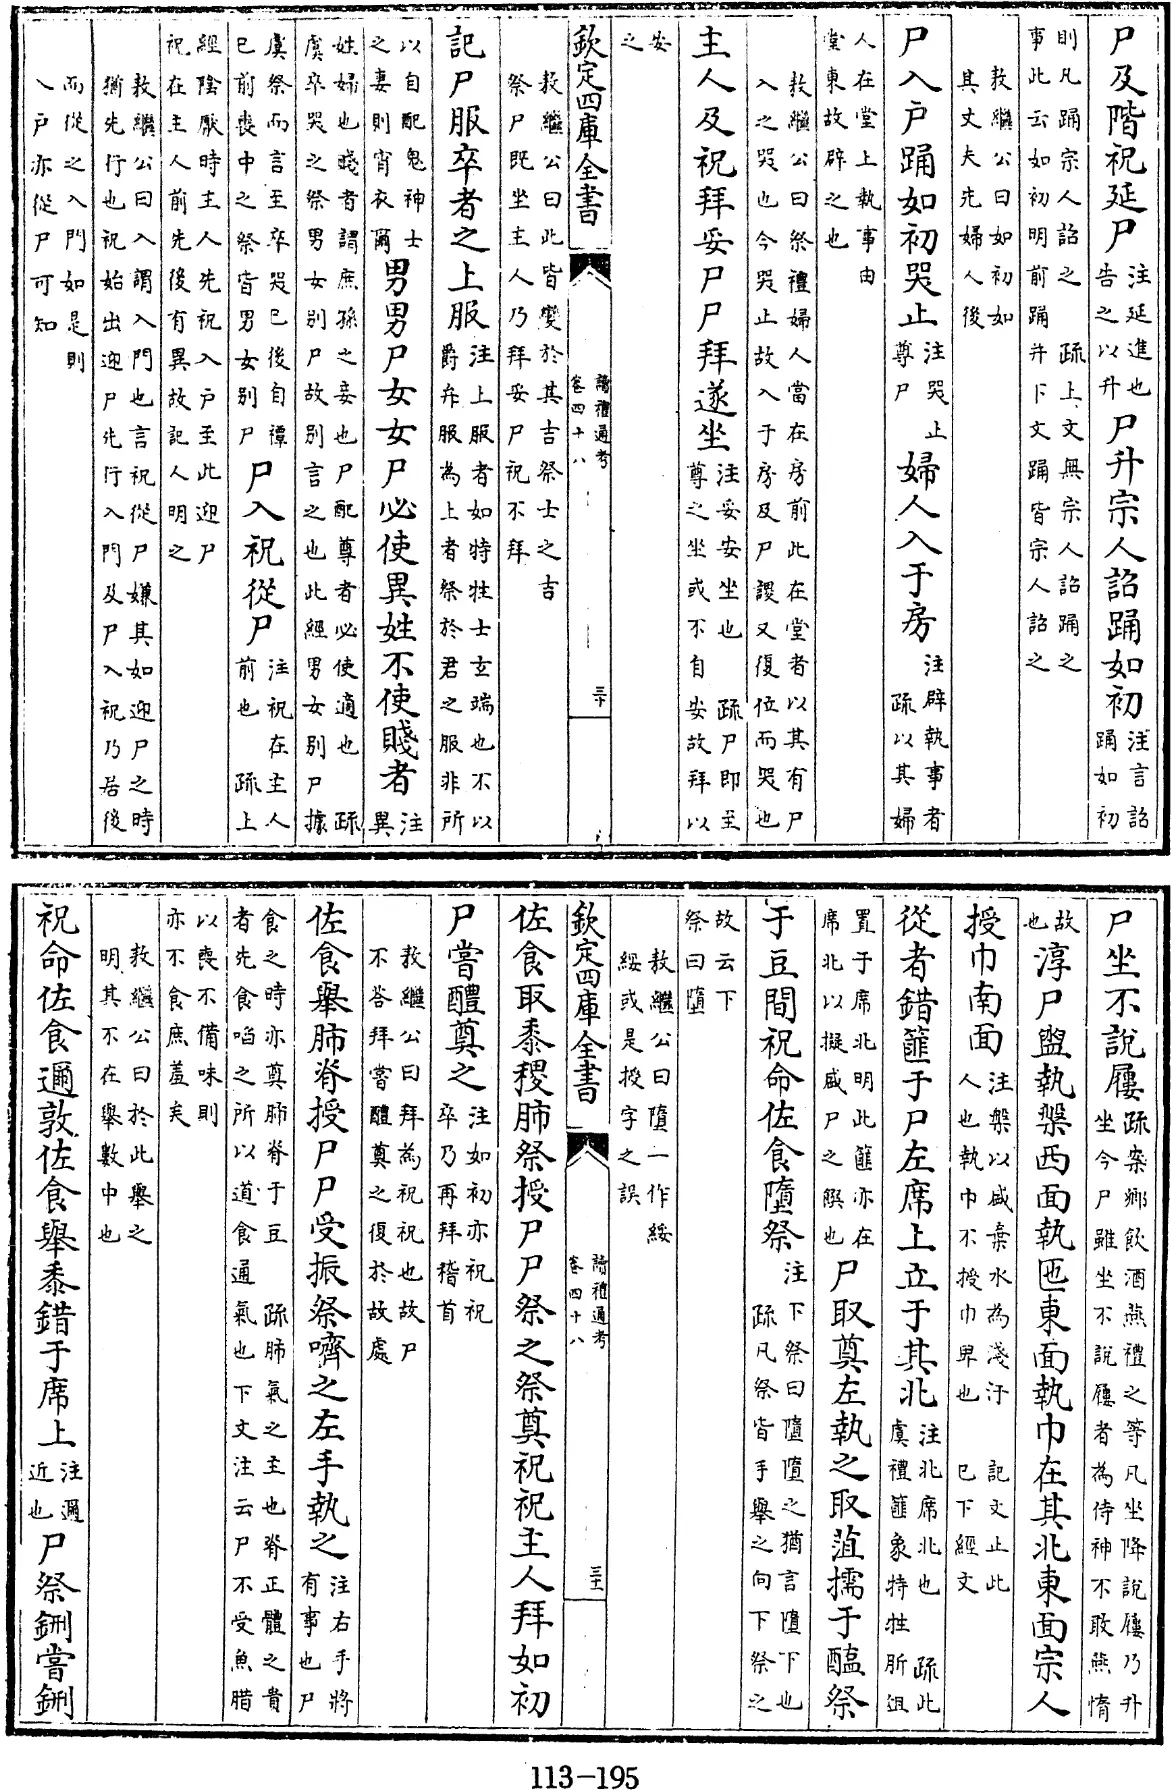 尸及階祝延尸注延進也告之以升尸升宗人詔踊如初注言詔踊如初
則凡踊宗人詔之 疏上文無宗人詔踊之
事此云如初明前踊并下文踊皆宗人詔之
敖繼公曰如初如
其丈夫先婦人後
尸入户踊如初哭止注哭止尊尸婦人入于房注辟執事者疏以其婦
人在堂上執事由
堂東故辟之也
敖繼公曰祭禮婦人當在房前此在堂者以其有尸
入之哭也今哭止故入于房及尸謖又復位而哭也
主人及祝拜妥尸尸拜遂坐注妥安坐也 疏尸即至尊之坐或不自安故拜以
安
之
欽定四庫全書 讀禮通考 卷四十八 三十
敖繼公曰此皆變於其吉祭士之吉
祭尸既坐主人乃拜妥尸祝不拜
記尸服卒者之上服注上服者如特牲士玄端也不以爵弁服為上者祭於君之服非所
以自配鬼神士之妻則宵衣爾男男尸女女尸必使異姓不使賤者注異
姓婦也賤者謂庶孫之妾也尸配尊者必使適也 疏
虞卒哭之祭男女别尸故别言之也此經男女别尸據
虞祭而言至卒哭已後自禫已前喪中之祭皆男女别尸尸入祝從尸注祝在主人前也 疏上
經陰厭時主人先祝入户至此迎尸
祝在主人前先後有異故記人明之
敖繼公曰入謂入門也言祝從尸嫌其如迎尸之時
猶先行也祝始出迎尸先行入門及尸入祝乃居後
而從之入門如是則
入户亦從尸可知
尸坐不說屨疏案鄉飲酒燕禮之等凡坐降說屨乃升坐今尸雖坐不說屨者為侍神不敢燕惰
故也淳尸盥執槃西面執匜東面執巾在其北東面宗人
授巾南面注槃以盛棄水為淺汙人也執巾不授巾卑也 記文止此已下經文
從者錯篚于尸左席上立于其北注北席北也 疏此虞禮篚象特牲肵俎
置于席北明此篚亦在席北以擬盛尸之饌也尸取奠左執之取菹擩于醢祭
于豆間祝命佐食墮祭注下祭曰墮墮之猶言墮下也疏凡祭皆手舉之向下祭之
故云下
祭曰墮
敖繼公曰墮一作綏
綏或是授字之誤
欽定四庫全書 讀禮通考 卷四十八 三十一
佐食取黍稷肺祭授尸尸祭之祭奠祝祝主人拜如初
尸嘗醴奠之注如初亦祝祝卒乃再拜稽首
敖繼公曰拜為祝祝也故尸
不荅拜嘗醴奠之復於故處
佐食舉肺脊授尸尸受振祭嚌之左手執之注右手將有事也尸
食之時亦奠肺脊于豆 疏肺氣之主也脊正體之貴
者先食啗之所以道食通氣也下文注云尸不受魚腊
以喪不備味則
亦不食庶羞矣
敖繼公曰於此舉之
明其不在舉數中也
祝命佐食邇敦佐食舉黍錯于席上注邇近也尸祭鉶嘗鉶
113-195